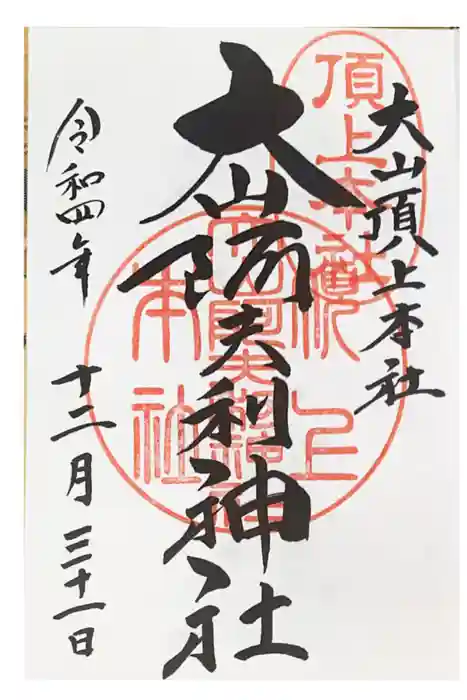 大山頂上本社
大山阿夫利神社
令和四年
十二月三十一日
頂上本社